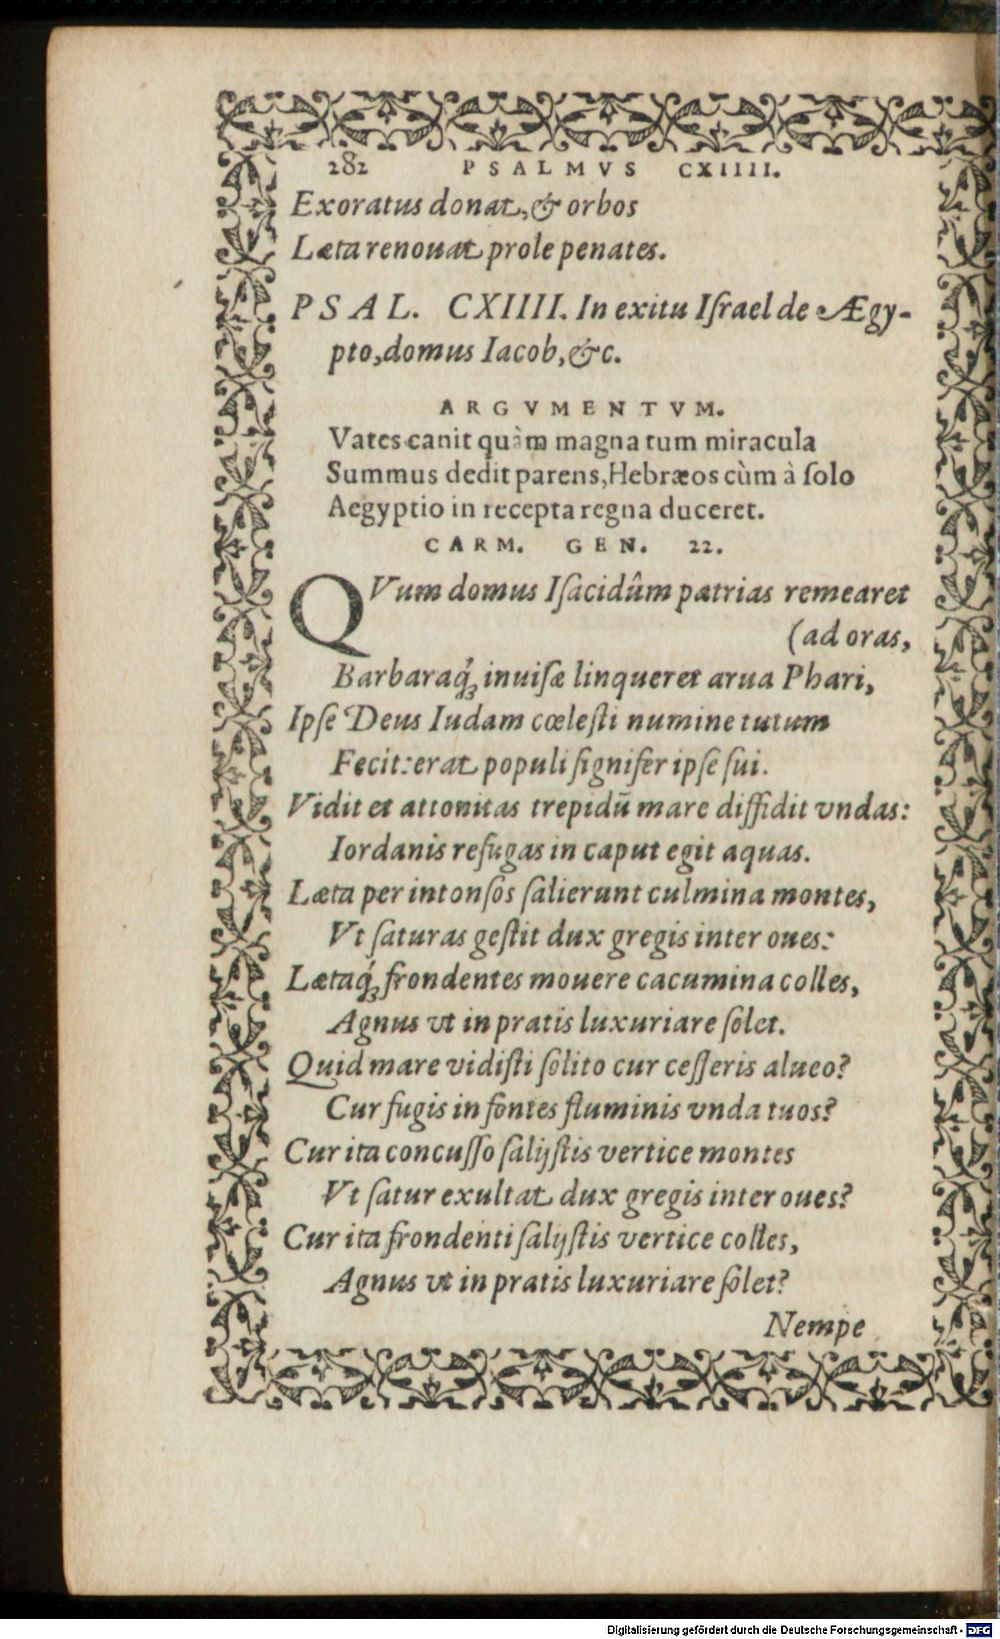 282 PSALMVS CXIIII.
Exoratus donat, & orbos
Læta renouat prole penates.
PSAL. CXIIII. In exitu Iſrael de Ægy-
pto, domus Iacob, &c.
ARGVMENTVM.
Vates canit quàm magna tum miracula
Summus dedit parens, Hebræos cùm à ſolo
Aegyptio in recepta regna duceret.
CARM. GEN. 22.
QVum domus Iſacidûm patrias remearet
(ad oras,
Barbaraq́; inuiſæ linqueret arua Phari,
Ipſe Deus Iudam cœleſti numine tutum
Fecit: erat populi ſignifer ipſe ſui.
Vidit et attonitas trepidū mare diffidit vndas:
Iordanis refugas in caput egit aquas.
Læta per intonſos ſalierunt culmina montes,
Vt ſaturas geſtit dux gregis inter oues:
Lætaq́; frondentes mouere cacumina colles,
Agnus vt in pratis luxuriare ſolet.
Quid mare vidiſti ſolito cur ceſſeris alueo?
Cur fugis in fontes fluminis vnda tuos?
Cur ita concuſſo ſalijſtis vertice montes
Vt ſatur exultat dux gregis inter oues?
Cur ita frondenti ſalijſtis vertice colles,
Agnus vt in pratis luxuriare ſolet?
Nempe
Digitalisierung gefördert durch die Deutsche Forschungsgemeinschaft - DFG